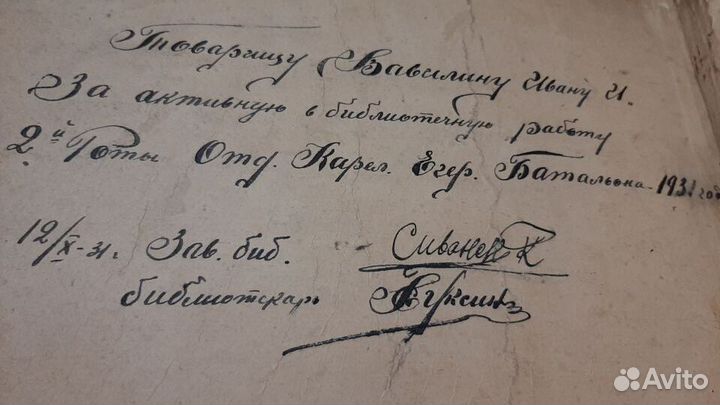 Товарищу Вавилину Ивану И.
За активную в библиотечную работу
2й Роты Отд. Карел. Егер. Батальона 1931 год
12/X-31г. Зав. биб.
библиотекарь
Avito